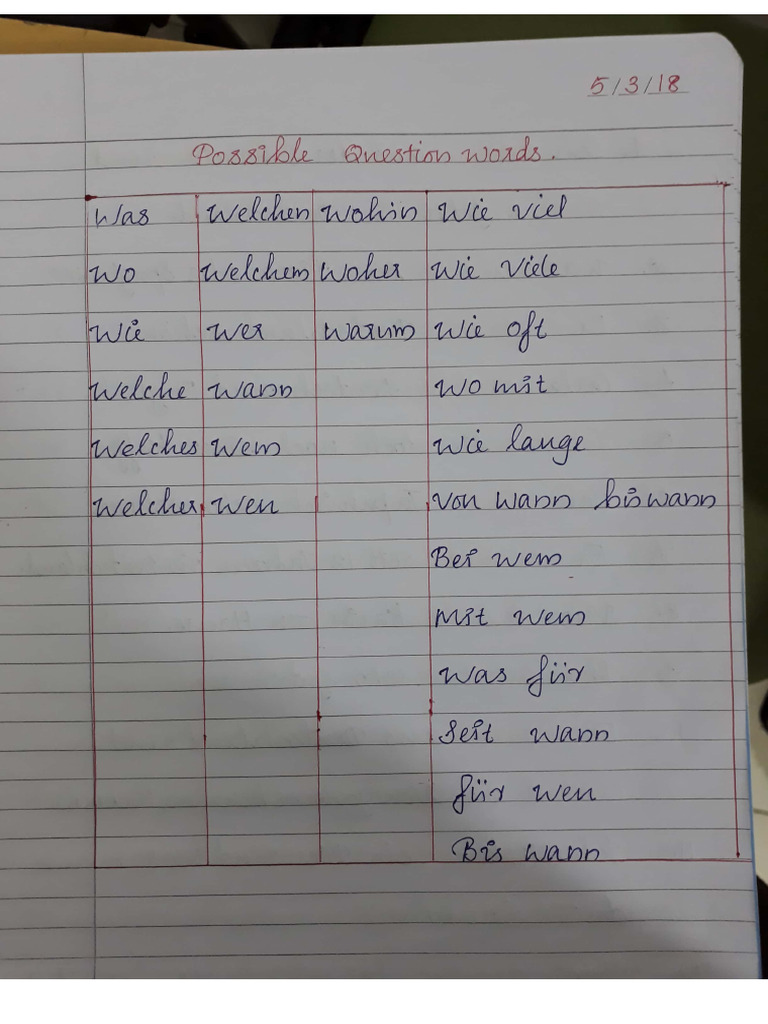 5/3/18
Possible Question words.
Was Welchen Wohin Wie viel
Wo Welchem Woher Wie Viele
Wie Wer Warum Wie oft
Welche Wann Wo mit
Welches Wem Wie lange
Welcher Wen Von wann bis wann
Bei wem
Mit wem
Was für
Seit wann
für wen
Bis wann